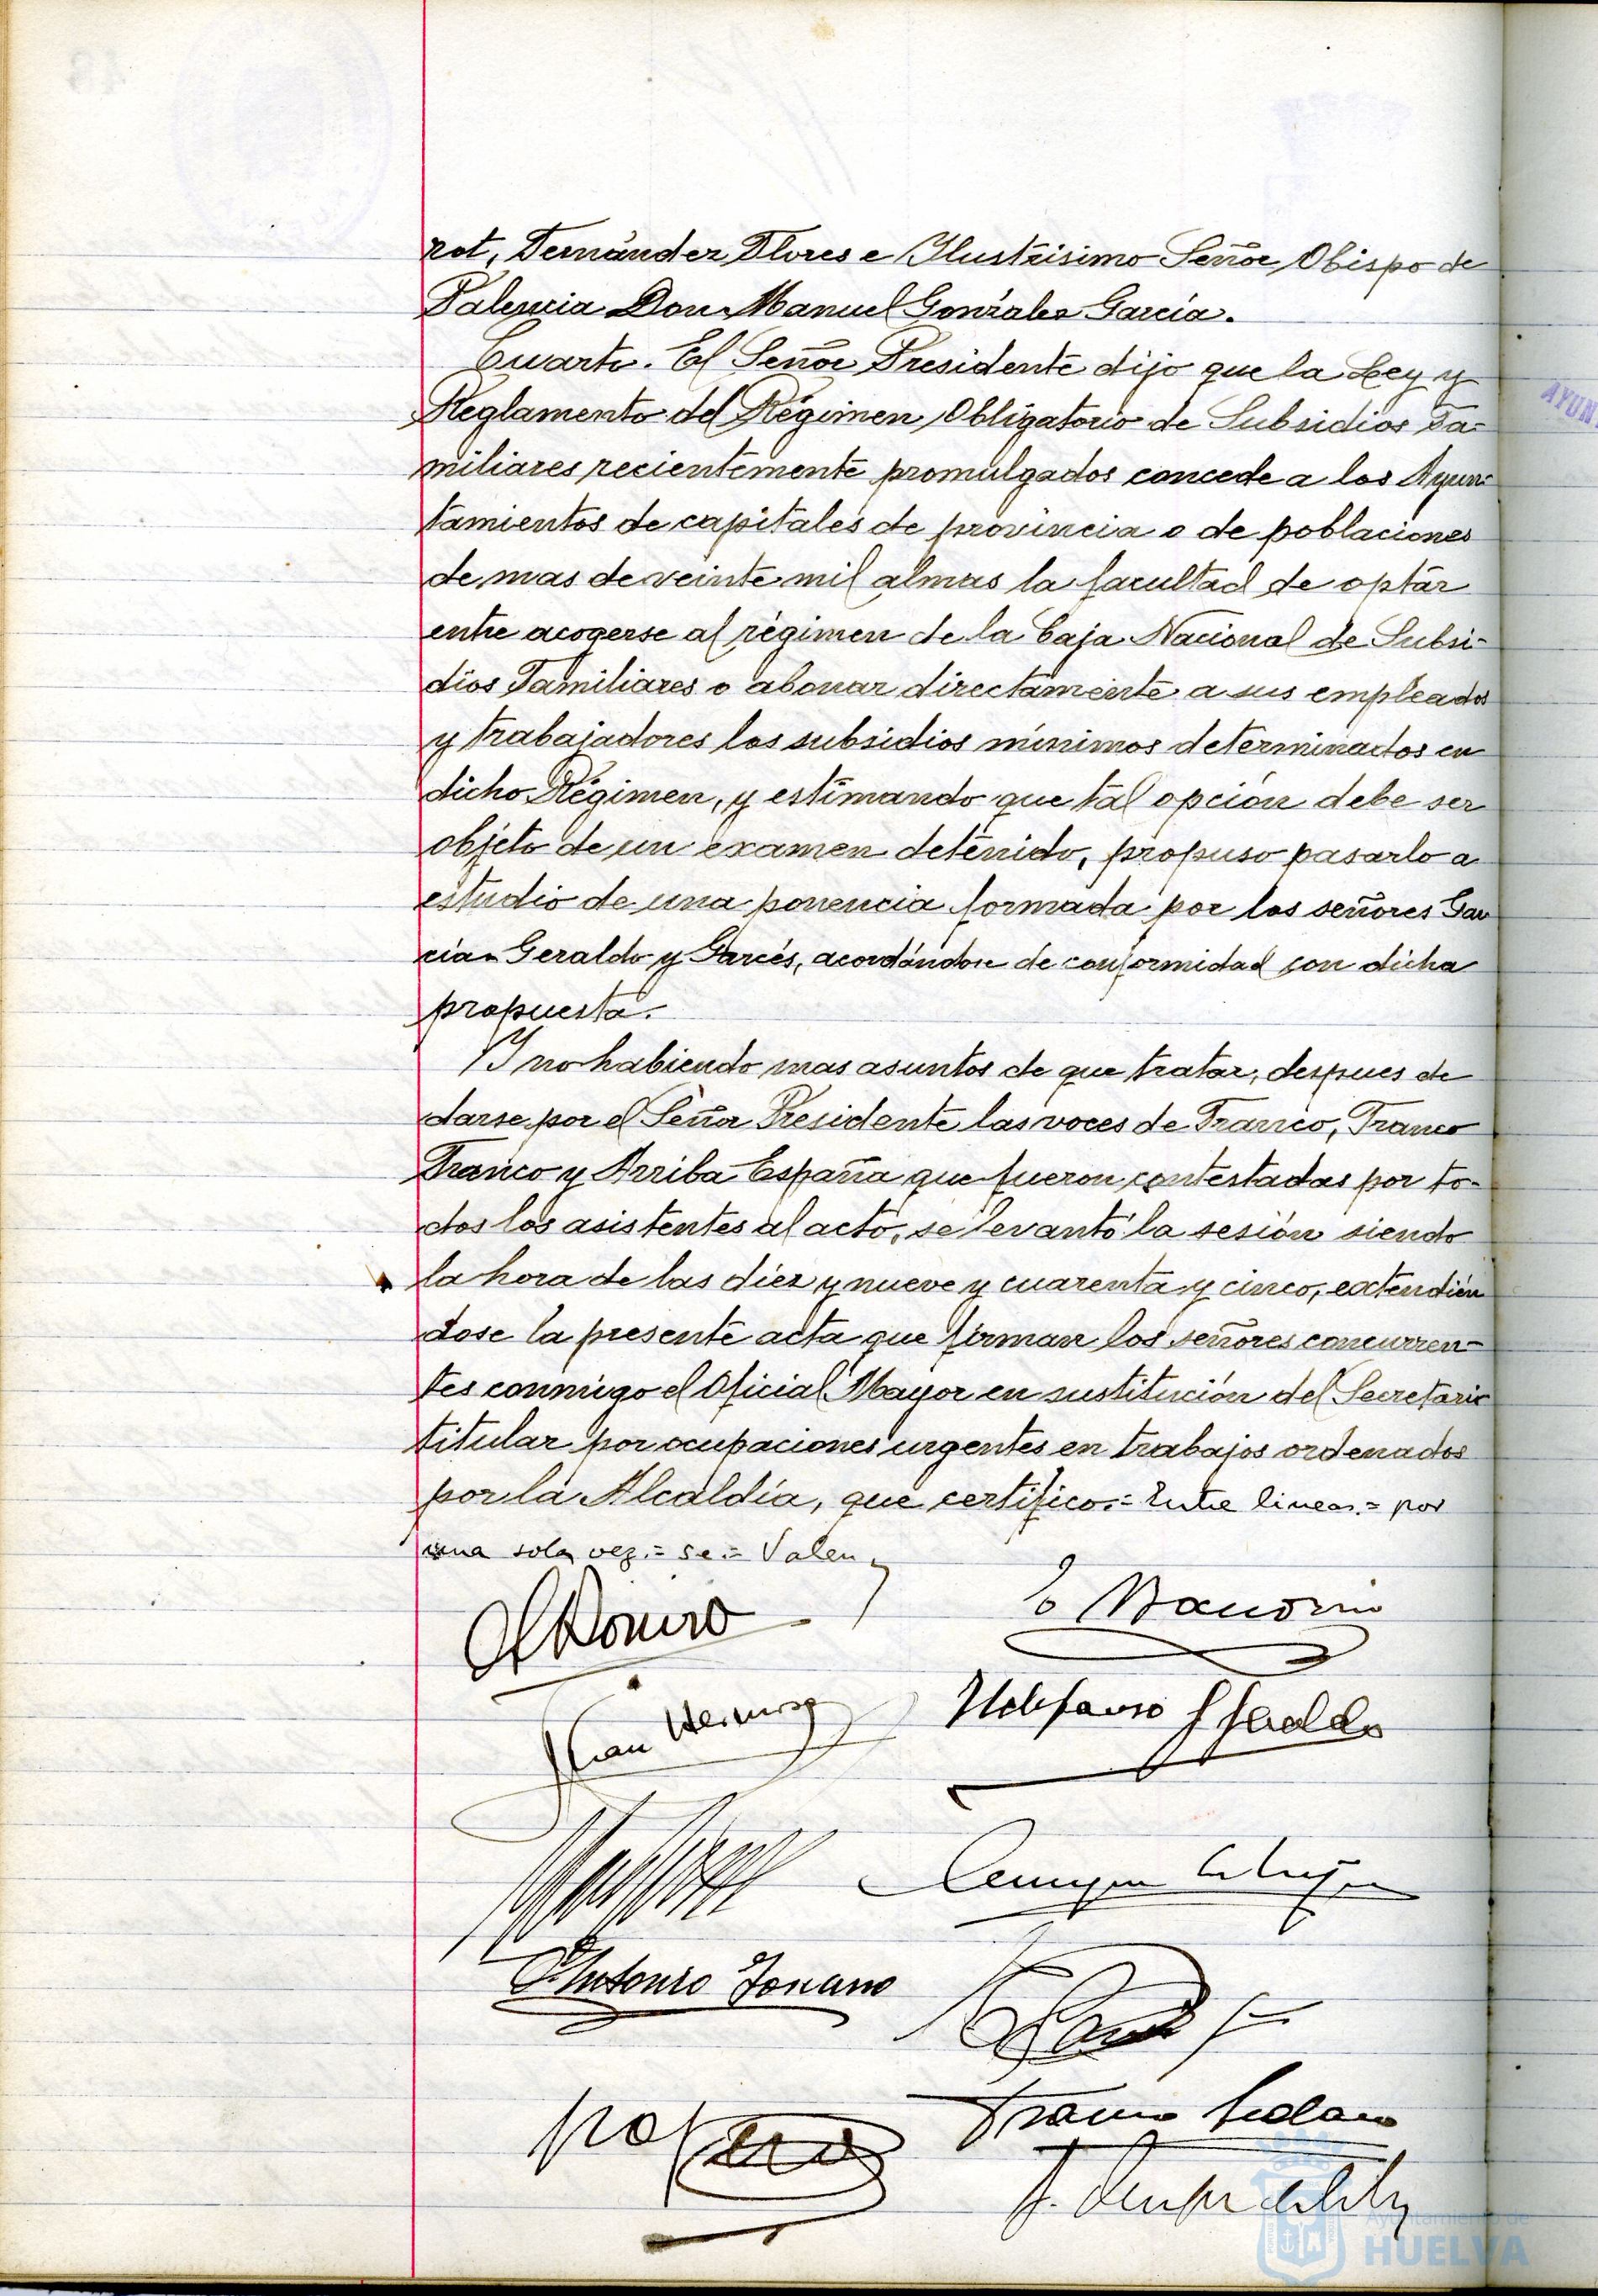 rot, Fernández Flores e Ilustrísimo Señor Obispo de
Palencia Don Manuel González García.
Cuarto. El Señor Presidente dijo que la Ley y
Reglamento del Régimen Obligatorio de Subsidios Fa-
miliares recientemente promulgados concede a los Ayun-
tamientos de capitales de provincia o de poblaciones
de mas de veinte mil almas la facultad de optar
entre acogerse al régimen de la Caja Nacional de Subsi-
dios Familiares o abonar directamente a sus empleados
y trabajadores los subsidios mínimos determinados en
dicho Régimen, y estimando que tal opción debe ser
objeto de un examen detenido, propuso pasarlo a
estudio de una ponencia formada por los señores Gar
cía Geraldo y Garcés, acordándose de conformidad con dicha
propuesta.
Y no habiendo mas asuntos de que tratar, despues de
darse por el Señor Presidente las voces de Franco, Franco
Franco y Arriba España que fueron contestadas por to-
dos los asistentes al acto, se levantó la sesión siendo
la hora de las diez y nueve y cuarenta y cinco, extendién
dose la presente acta que firman los señores concurren-
tes conmigo el Oficial Mayor en sustitución del Secretario
titular por ocupaciones urgentes en trabajos ordenados
por la Alcaldía, que certifico.= Entre lineas.= por
una sola vez.= se.= Valen
Juan
Ildefonso G Geraldo
Antonio
AYUN
Ayuntamiento de
HUELVA